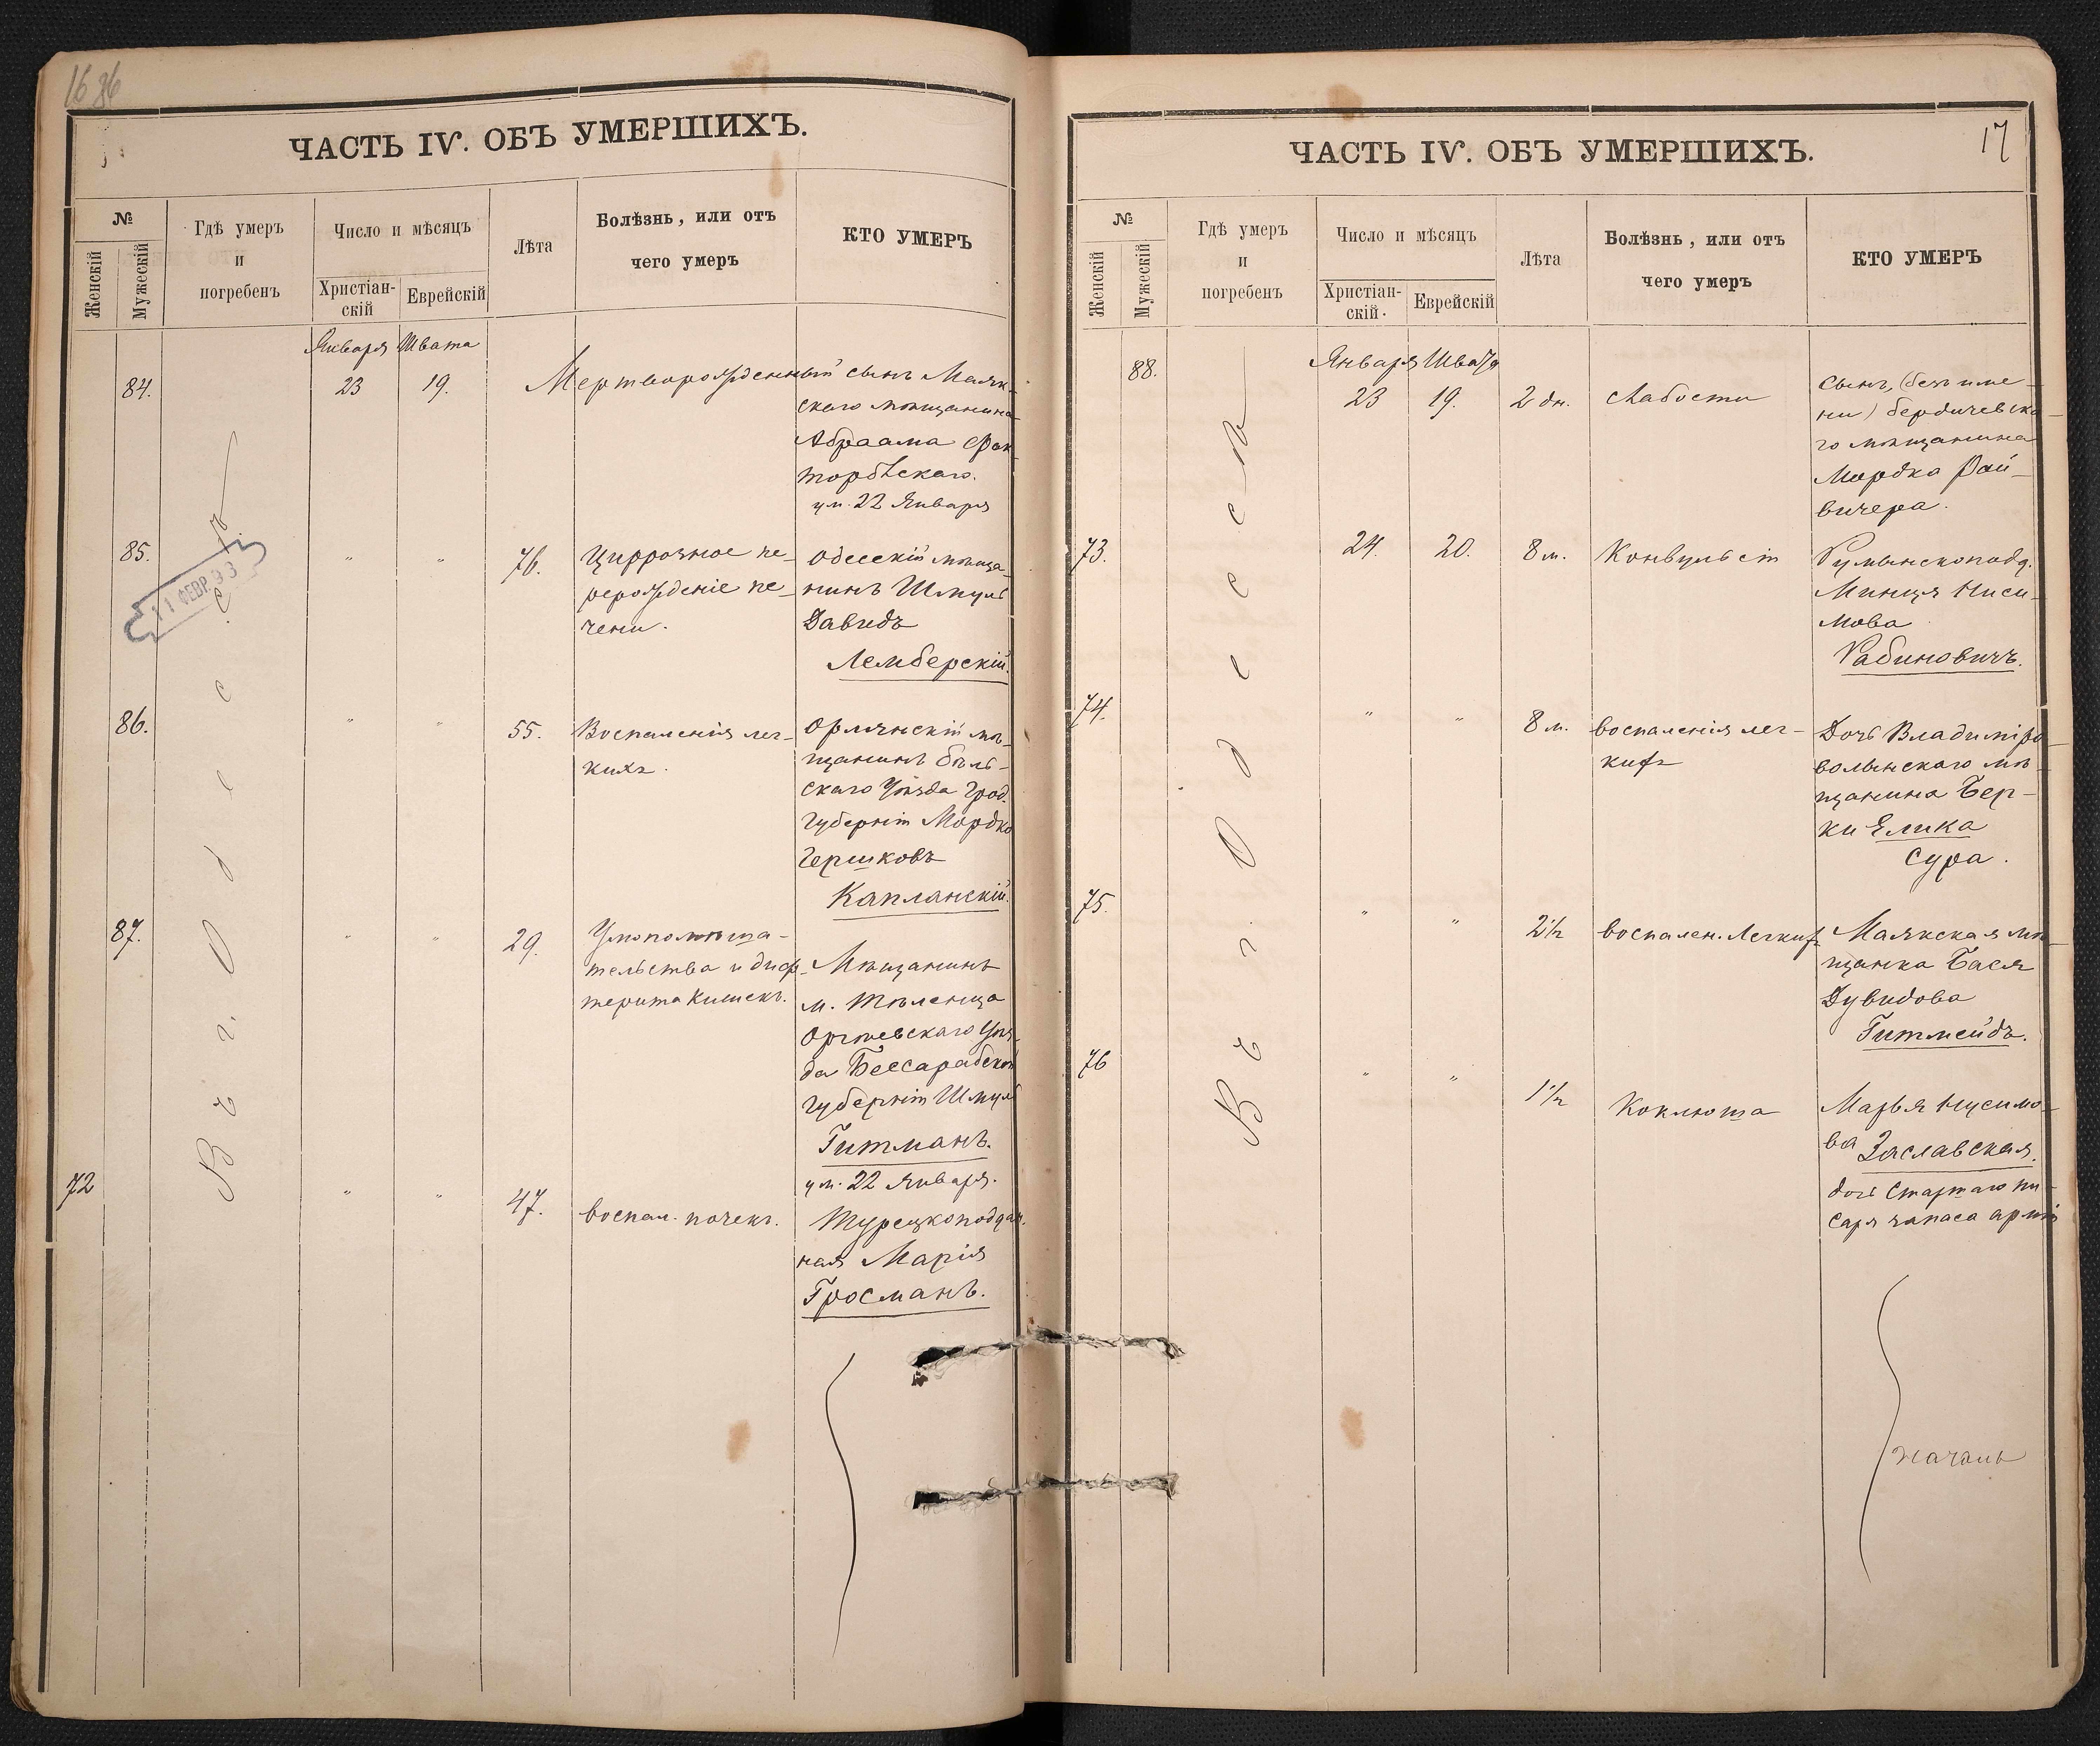 16 36
ЧАСТЬ IV. ОБЪ УМЕРШИХЪ.
№
Женскій
Мужескій
Гдѣ умеръ
и
погребенъ
Число и мѣсяцъ
Христіан-
скій
Еврейскій
Лѣта
Болѣзнь, или отъ
чего умеръ
КТО УМЕРЪ
Въ г. Одессѣ
11 ФЕВР. 93
Января Швата
84. 23 19. Мертворожденный сынъ Маяк-
скаго мѣщанина
Абраама Фак-
торовскаго.
ум. 22 Января
85. " " 76. Циррозное пе-
рерожденіе пе-
чени.
Одесскій мѣща-
нинъ Шмуль
Давидъ
Лемберскій.
86. " " 55. Воспаленія лег-
кихъ.
Орлянскій мѣ-
щанинъ бѣль-
скаго Уѣзда Грод.
Губерніи Мордко
Гершковъ
Капланскій.
87. " " 29. Умопомѣша-
тельства и диф-
терита кишекъ.
Мѣщанинъ
м. Теленеща
Оргѣевскаго Уѣз-
да Бессарабской
Губерніи Шмуль
Гитманъ.
ум. 22 Января.
72 " " 47. воспал. почекъ.
Турецкоподдан-
ная Марія
Гросманъ.
17
ЧАСТЬ IV. ОБЪ УМЕРШИХЪ.
№
Женскій
Мужескій
Гдѣ умеръ
и
погребенъ
Число и мѣсяцъ
Христіан-
скій.
Еврейскій
Лѣта
Болѣзнь, или отъ
чего умеръ
КТО УМЕРЪ
Въ г. Одессѣ
Января Швата
88. 23 19. 2 дн. Слабости
Сынъ, (безъ име-
ни) бердичевска-
го мѣщанина
Мордка Рай-
вичера.
73. 24. 20. 8 м. Конвульсіи
Румынскоподд.
Минця Ниси-
мова
Рабиновичъ.
74. " " 8 м. воспаленія лег-
кихъ
Дочь Владиміро-
волынскаго мѣ-
щанина Бер-
ки Елика
Сура.
75. " " 2½ воспален. Легкихъ
Маякская мѣ-
щанка Бася
Дувидова
Гитмейдъ.
76 " " 1½ Коклюша
Марья Нусимо-
ва Заславская.
дочь Старшаго пи-
саря запаса арміи